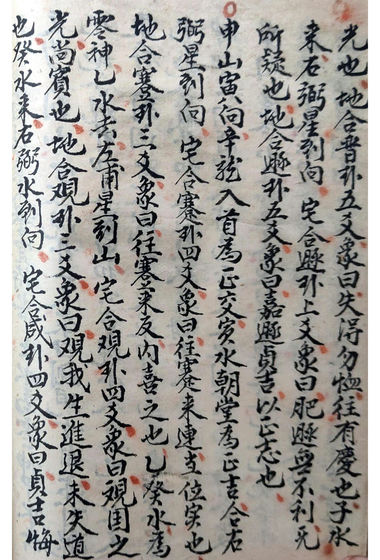 光也地合晋卦五爻象曰失得勿恤往有慶也子水
来右弼星到向 宅合遯卦上爻象曰肥遯無不利无
所疑也地合遯卦五爻象曰嘉遯貞吉以正志也
申山寅向辛龍入首為正交寅水朝堂為正吉合右
弼星到向 宅合蹇卦四爻象曰往蹇来連当位实也
地合蹇卦三爻象曰往蹇来反内喜之也乙癸水為
零神乙水去左甫星到山 宅合观卦四爻象曰观国之
光尚賓也地合观卦三爻象曰观我生進退未失道
也癸水来右弼水到向 宅合咸卦四爻象曰貞吉悔